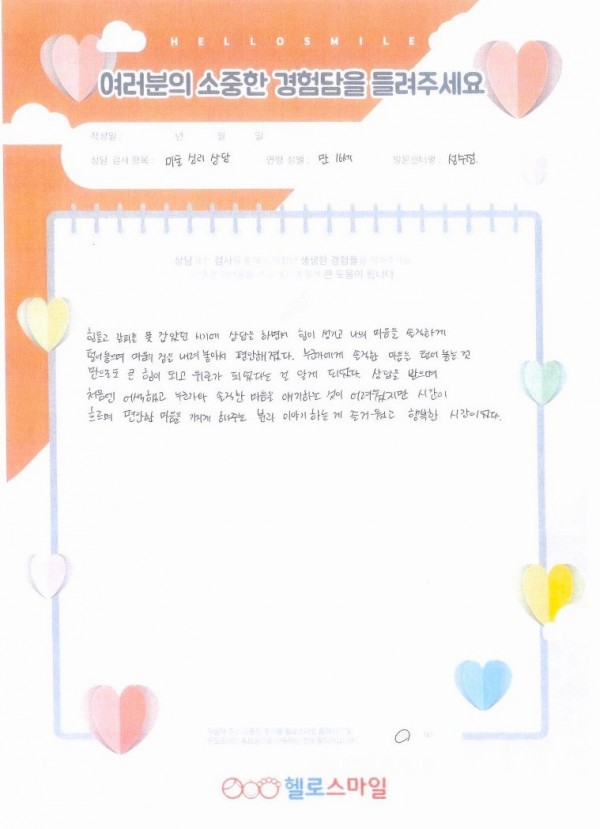 HELLOSMILE
여러분의 소중한 경험담을 들려주세요
작성일 : 년 월 일
상담 검사 항목 : 미술 심리 상담 연령 성별 : 만 16세 방문센터명 : 성수점
상담 또는 검사를 생생한 경험들을
큰 도움이 됩니다
힘들고 갈피를 못 잡았던 시기에 상담을 하면서 힘이 생기고 나의 마음을 솔직하게
털어놓으며 마음의 짐을 내려 놓아서 편안해졌다. 누군가에게 솔직한 마음을 털어 놓는 것
만으로도 큰 힘이 되고 위로가 되었다는 걸 알게 되었다 상담을 받으며
처음엔 어색했고 누군가와 솔직한 마음을 얘기하는 것이 어려웠지만 시간이
흐르며 편안한 마음을 가지게 해주는 분과 이야기하는 게 즐거웠고 행복한 시간이었다.
헬로스마일